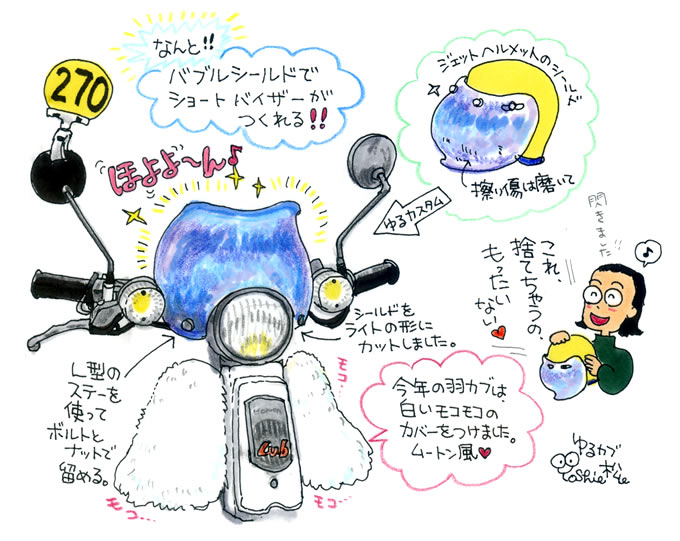 なんと!!
バブルシールドで
ショートバイザーが
つくれる!!
ジェットヘルメットのシールド
擦り傷は磨いて
270
ほよよ〜ん♪
ゆるカスタム
閃きました!!
♪
これ、
捨てちゃうの、
もったいない♥
シールドを
ライトの形に
カットしました。
L型の
ステーを
使って
ボルトと
ナットで
留める。
モコ…
今年の羽カブは
白いモコモコの
カバーをつけました。
ムートン風♥
HONDA
Cub
モコ…
モコ…
ゆるカブ